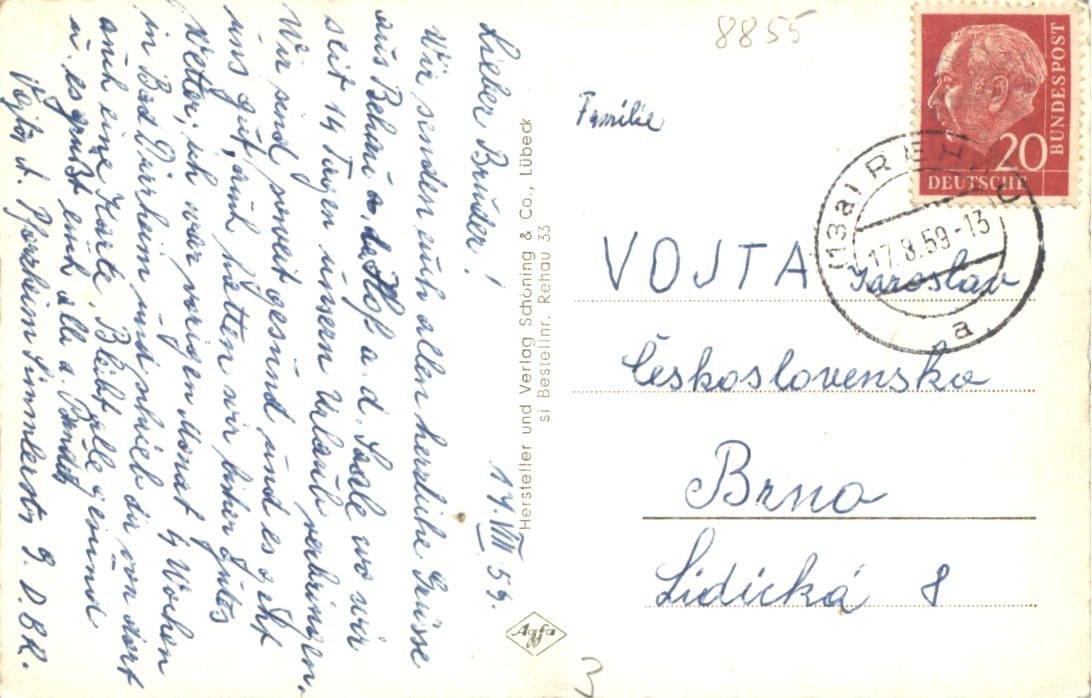 17.VIII 59.
Lieber Bruder!
Wir senden euch allen herzliche Grüsse
aus Rehau a, Hof a. d. Saale wo wir
seit 14 Tagen unsern Urlaub verbringen.
Wir sind soweit gesund und es geht
uns gut, auch hatten wir bisher gutes
Wetter; ich war vorigen Monat 4 Wochen
in Bad Dürrheim und schrieb dir von dort
auch eine Karte. Bleibt alle gesund
u. es grüßt euch alle a. Bruder
Vojta A. Pforzheim Simmlerstr 9. D.B.R.
Hersteller und Verlag Schöning & Co., Lübeck
si Bestellnr. Rehau 33
Agfa
8855
BUNDESPOST
20
DEUTSCHE
(13a) REHAU
17.8.59-13
a
Familie
VOJTA Jaroslav
Československo
Brno
Lidická 8
3